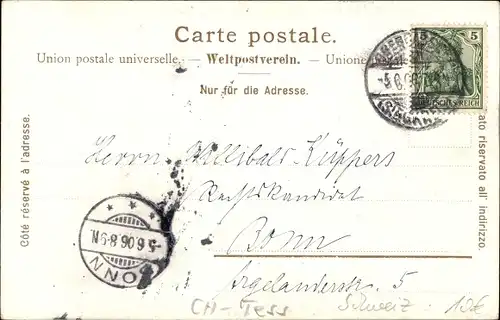 Carte postale.
Union postale universelle. — Weltpostverein. — Unione
Nur für die Adresse.
Côté réservé à l'adresse.
ato riservato all' indirizzo.
5 5
DEUTSCHES REICH
5.6.06
(SIEGKREIS)
Herrn Willibald Küppers
Rechtskandidat
Bonn
Argelanderstr. 5
BONN
-5.6.06.8-9N.
CH-Tess Schweiz 10€